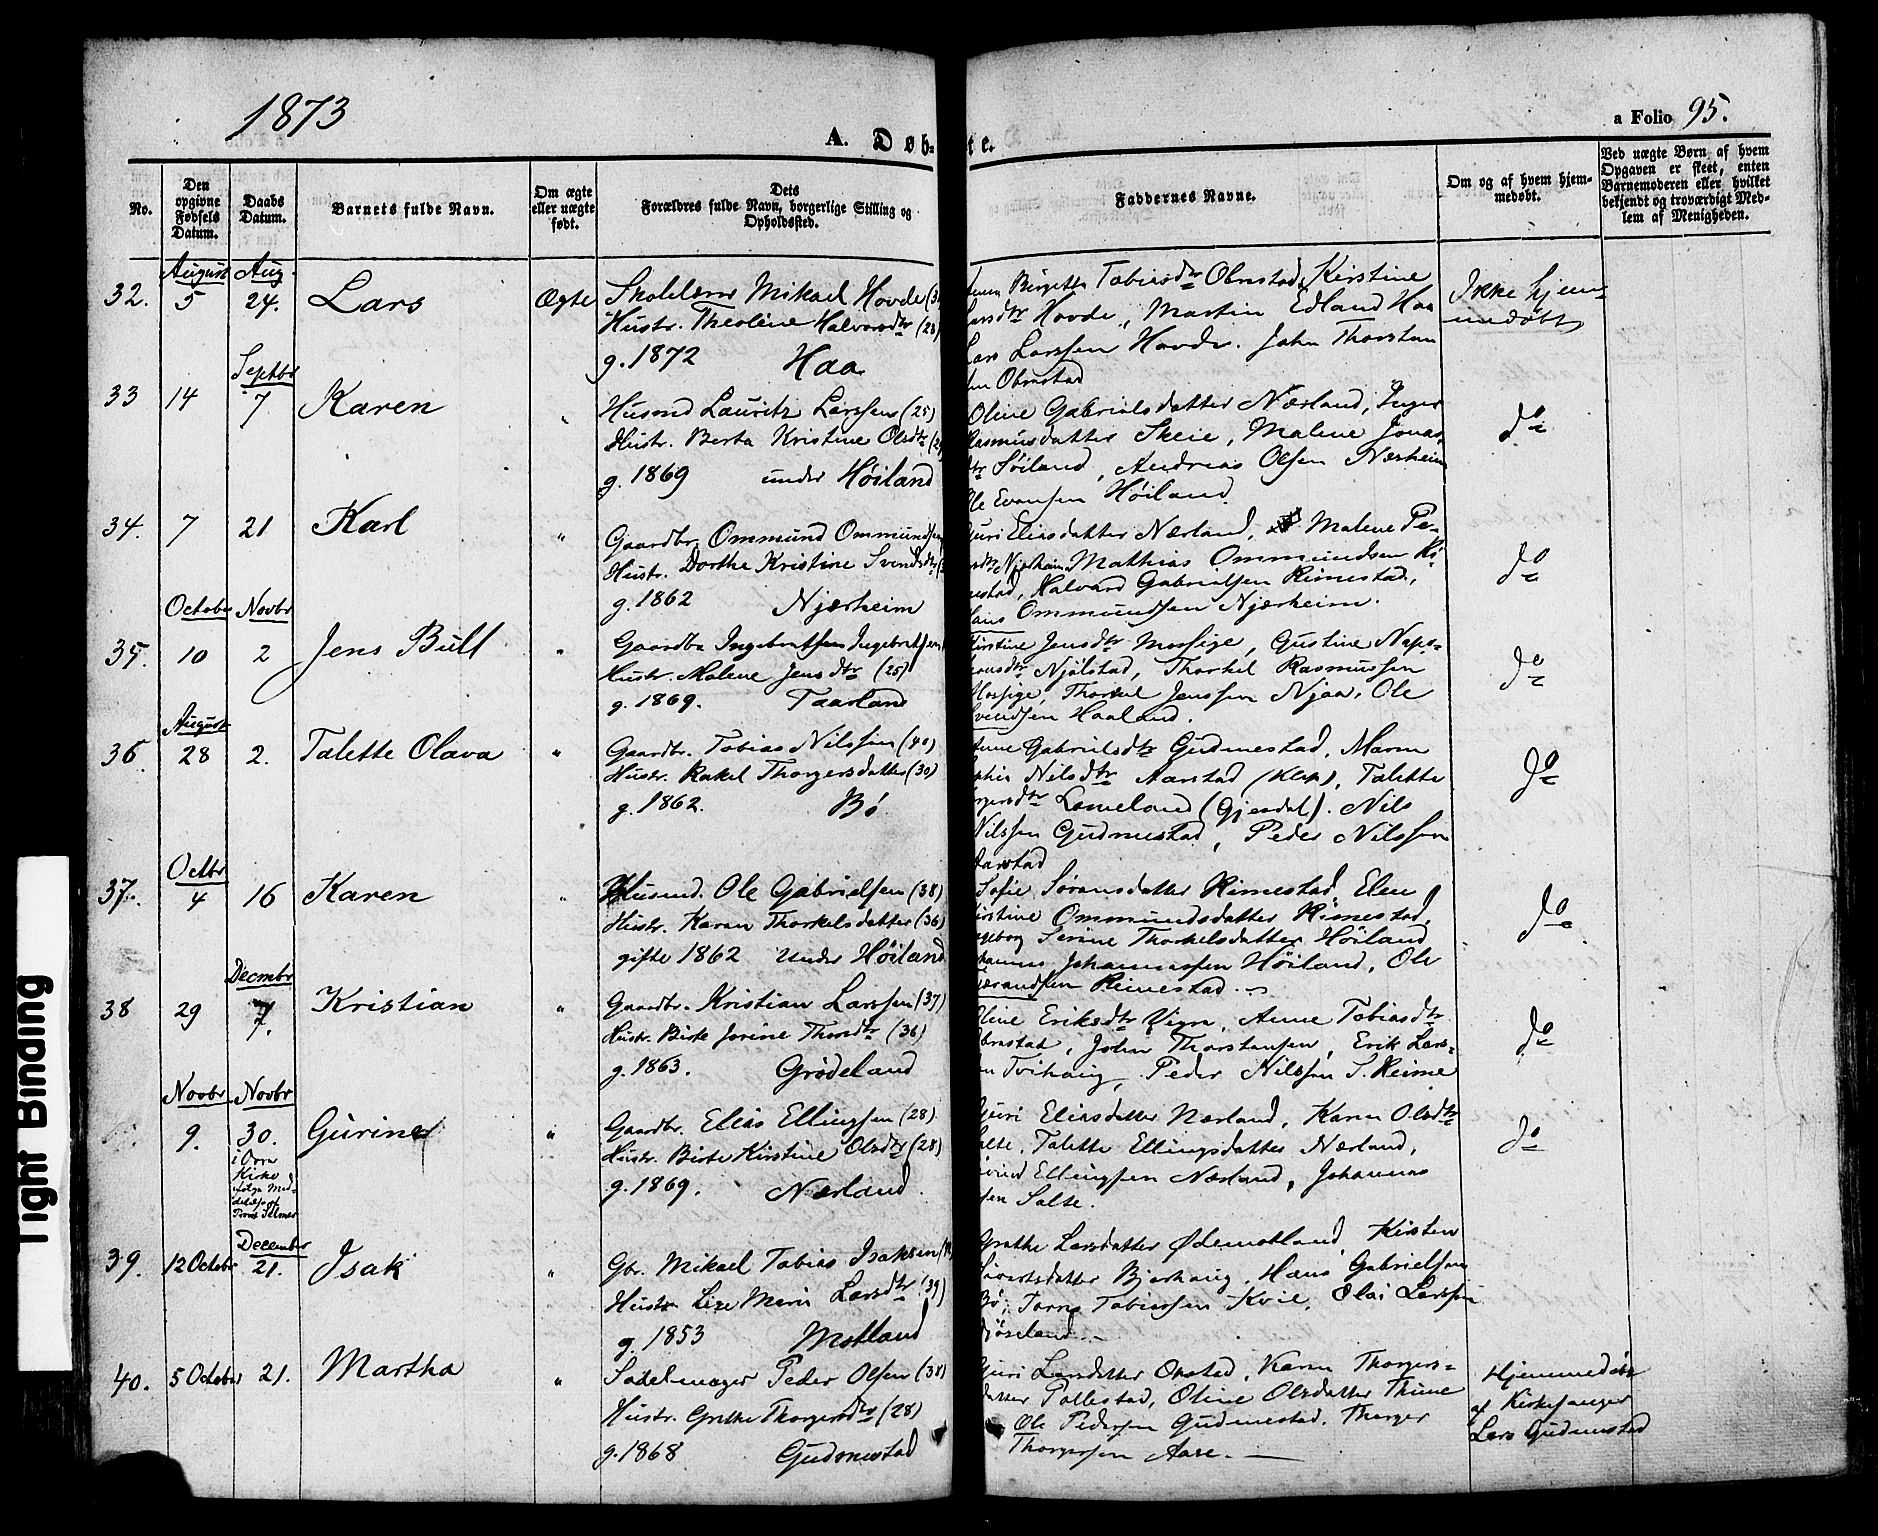 1873
A. Døb-
te.
a Folio 95.
No.
Den opgivne Fødsels Datum.
Daabs Datum.
Barnets fulde Navn.
Om ægte eller uægte født.
Dets Forældres fulde Navn, borgerlige Stilling og Opholdssted.
Faddernes Navne.
Om og af hvem hjemmedøbt.
Ved uægte Børn af hvem Opgaven er skeet, enten Barnemoderen eller hvilket bekjendt og troværdigt Medlem af Menigheden.
32. August 5 Aug. 24. Lars Ægte
Skolelærer Mikael Hovde
Hustr. Theoline Halvorsdtr (28)
g. 1872 Haa
Birgitte Tobiasdtr Obrestad, Kirstine
Larsdtr Hovde, Martin Edland Haa
Lars Larssen Hovde. John Thorstensen Obrestad
Ikke hjemmedøbt
33 14 Septbr 7 Karen "
Husmd Lauritz Larssen (25)
Hustr. Berta Kristine Olsdtr
g. 1869 under Høiland
Oline Gabrielsdatter Nærland, Inger
Rasmusdatter Skeie, Malene Jonasdtr
Søiland, Andreas Olsen Nærheim
Ole Evensen Høiland
do
34. 7 21 Karl "
Gaardbr. Ommund Ommundsen
Hustr. Dorthe Kristine Svendsdtr
g. 1862 Njærheim
Guri Eliasdatter Nærland, Malene Pe-
Njærheim Mathias Ommundsen Ri-
mestad, Halvard Gabrielsen Rimestad,
Hans Ommundsen Njærheim.
do
35. October 10 Novbr 2 Jens Bull "
Gaardbr Ingebretsen Ingebretsen
Hustr. Malene Jensdtr (25)
g. 1869. Taarland
Kirstine Jensdtr Mossige, Gustine Napo-
leonsdtr Njølstad, Thorkel Rasmussen
Mossige, Thorkel Jenssen Njaa, Ole
Svendsen Haaland.
do
36. August 28 2. Talette Olava "
Gaardbr. Tobias Nilssen (40)
Hustr. Rakel Thorgersdatter (30)
g. 1862. Bø
Anne Gabrielsdtr Gudmestad, Maren
Sophia Nilsdtr Aarstad (Klep), Talette
Thorgersdtr Lomeland (Gjesdal). Nils
Nilssen Gudmestad, Peder Nilssen
Aarstad
do
37. Octbr 4 16 Karen "
Husmd. Ole Gabrielsen (38)
Hustr. Karen Thorkelsdatter (36)
gifte 1862 under Høiland
Sofie Sørensdatter Rimestad, Elen
Kirstine Ommundsdatter Rimestad,
Ingeborg Serine Thorkelsdatter Høiland
Johannes Johannessen Høiland, Ole
Rimestad.
do
38 29 Decmbr 7. Kristian "
Gaardbr. Kristian Larssen (37)
Hustr. Birte Jorine Thordtr (36)
g. 1863. Grødeland
Oline Eriksdtr Vigre, Anne Tobiasdtr
Obrestad, John Thorstensen, Erik Lars-
sen Tvihaug, Peder Nilssen S. Reime
do
Novbr 9. Novbr 30. Gurine "
i Orre
Kirke
ifølge Med-
delelse af
Provst Selmer
Gaardbr. Elias Ellingsen (28)
Hustr. Birte Kirstine Olsdtr (28)
g. 1869. Nærland.
Guri Eliasdatter Nærland, Karen Olsdtr
Salte, Talette Ellingsdatter Nærland,
Eivind Ellingsen Nærland, Johannes
sen Salte.
do
39. 12 Octobr December 21. Isak "
Gbr. Mikael Tobias Isaksen
Hustr. Lise Marie Larsdtr (39)
g. 1853 Motland
Grethe Larsdatter Ødemotland, Kirsten
Sivertsdatter Bjorhaug, Hans Gabrielsen
Bø, Tarre Tobiassen Kvie, Olai Larssen
Jøseland
40. 5 October 21. Martha "
Sadelmager Peder Olsen (38)
Hustr. Grethe Thorgersdtr (28)
g. 1868 Gudmestad
Guri Larsdatter Opstad, Karen Thorgers-
datter Pollestad, Oline Olsdatter Thime
Ole Pedersen Gudmestad. Thorger
Thorgersen Aase.
Hjemmedøbt
af Kirkesanger
Lars Gudmestad
Tight Binding